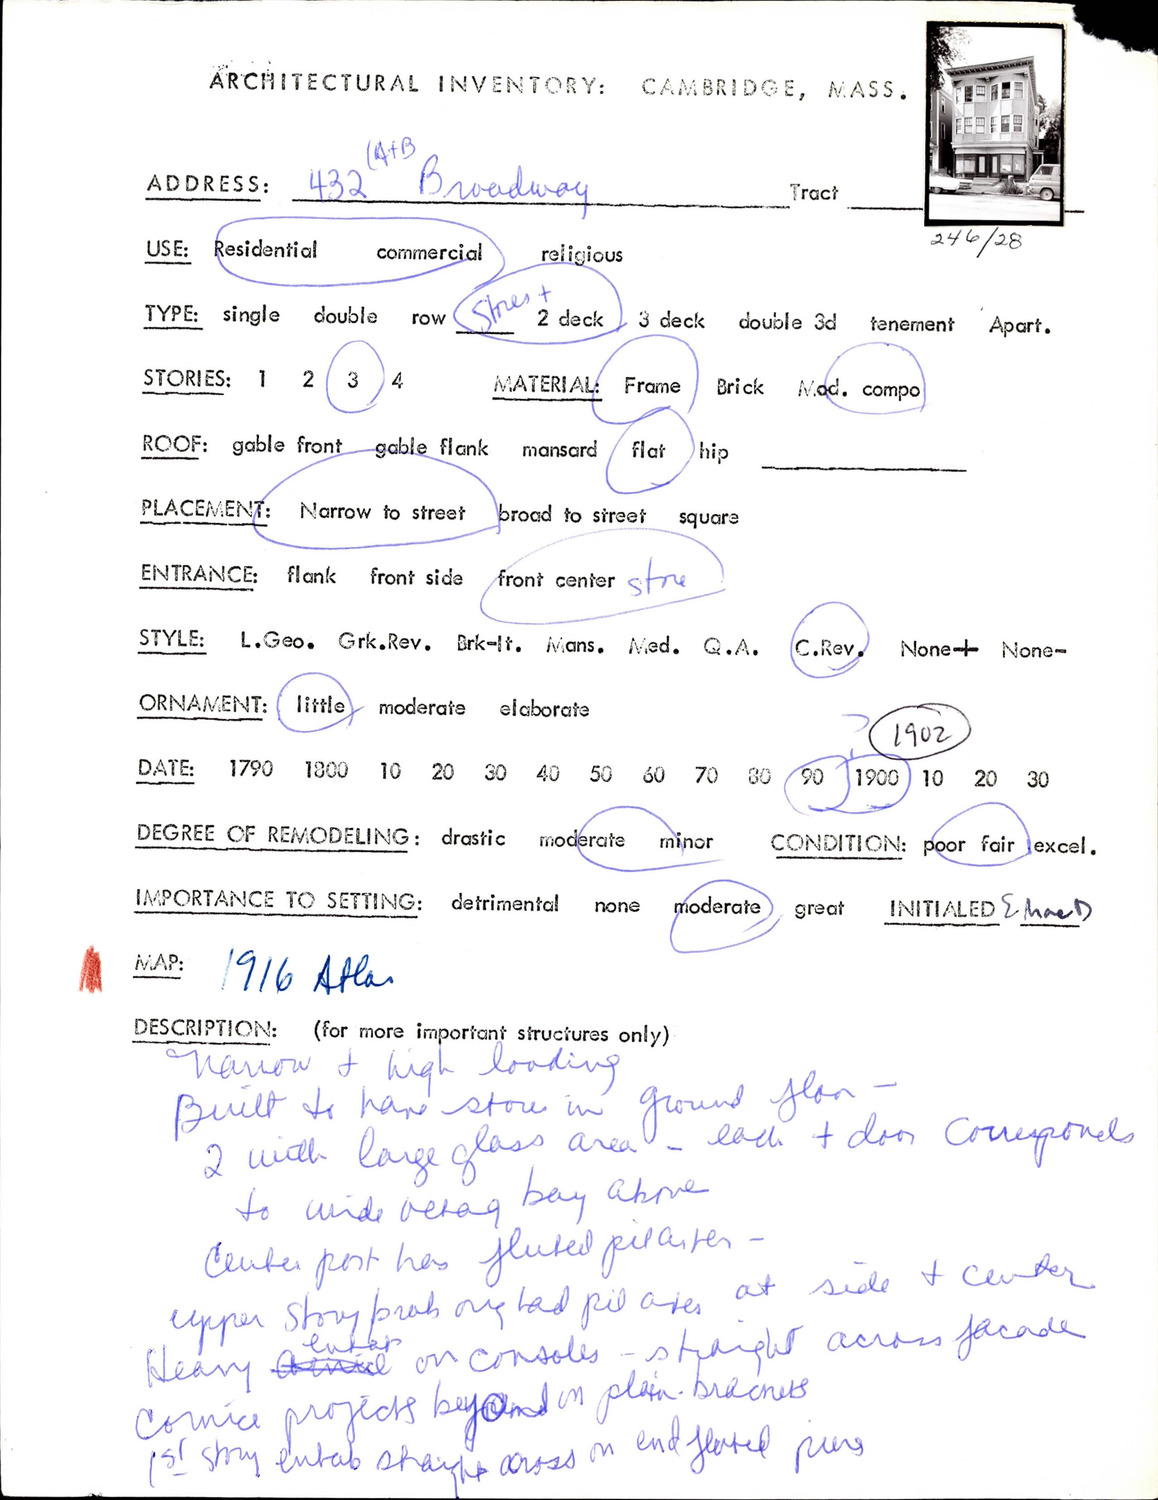 ARCHITECTURAL INVENTORY: CAMBRIDGE, MASS.
(A+B
ADDRESS: 432 Broadway Tract
246/28
USE: Residential commercial religious
TYPE: single double row Stores + 2 deck 3 deck double 3d tenement Apart.
STORIES: 1 2 3 4 MATERIAL: Frame Brick Mod. compo
ROOF: gable front gable flank mansard flat hip
PLACEMENT: Narrow to street broad to street square
ENTRANCE: flank front side front center store
STYLE: L.Geo. Grk.Rev. Brk-It. Mans. Med. Q.A. C.Rev. None+ None-
ORNAMENT: little moderate elaborate
? 1902
DATE: 1790 1800 10 20 30 40 50 60 70 80 90 1900 10 20 30
DEGREE OF REMODELING: drastic moderate minor CONDITION: poor fair excel.
IMPORTANCE TO SETTING: detrimental none moderate great INITIALED
MAP: 1916 Atlas
DESCRIPTION: (for more important structures only)
Narrow + high looking
Built to have store in ground floor -
2 with large glass area - each + door corresponds
to wide octag bay above
Center post has fluted pilaster -
upper story prob orig had pilasters at side + center
Heavy entab on consoles - straight across facade
Cornice projects beyond on plain brackets
1st story entab straight across on end fluted piers